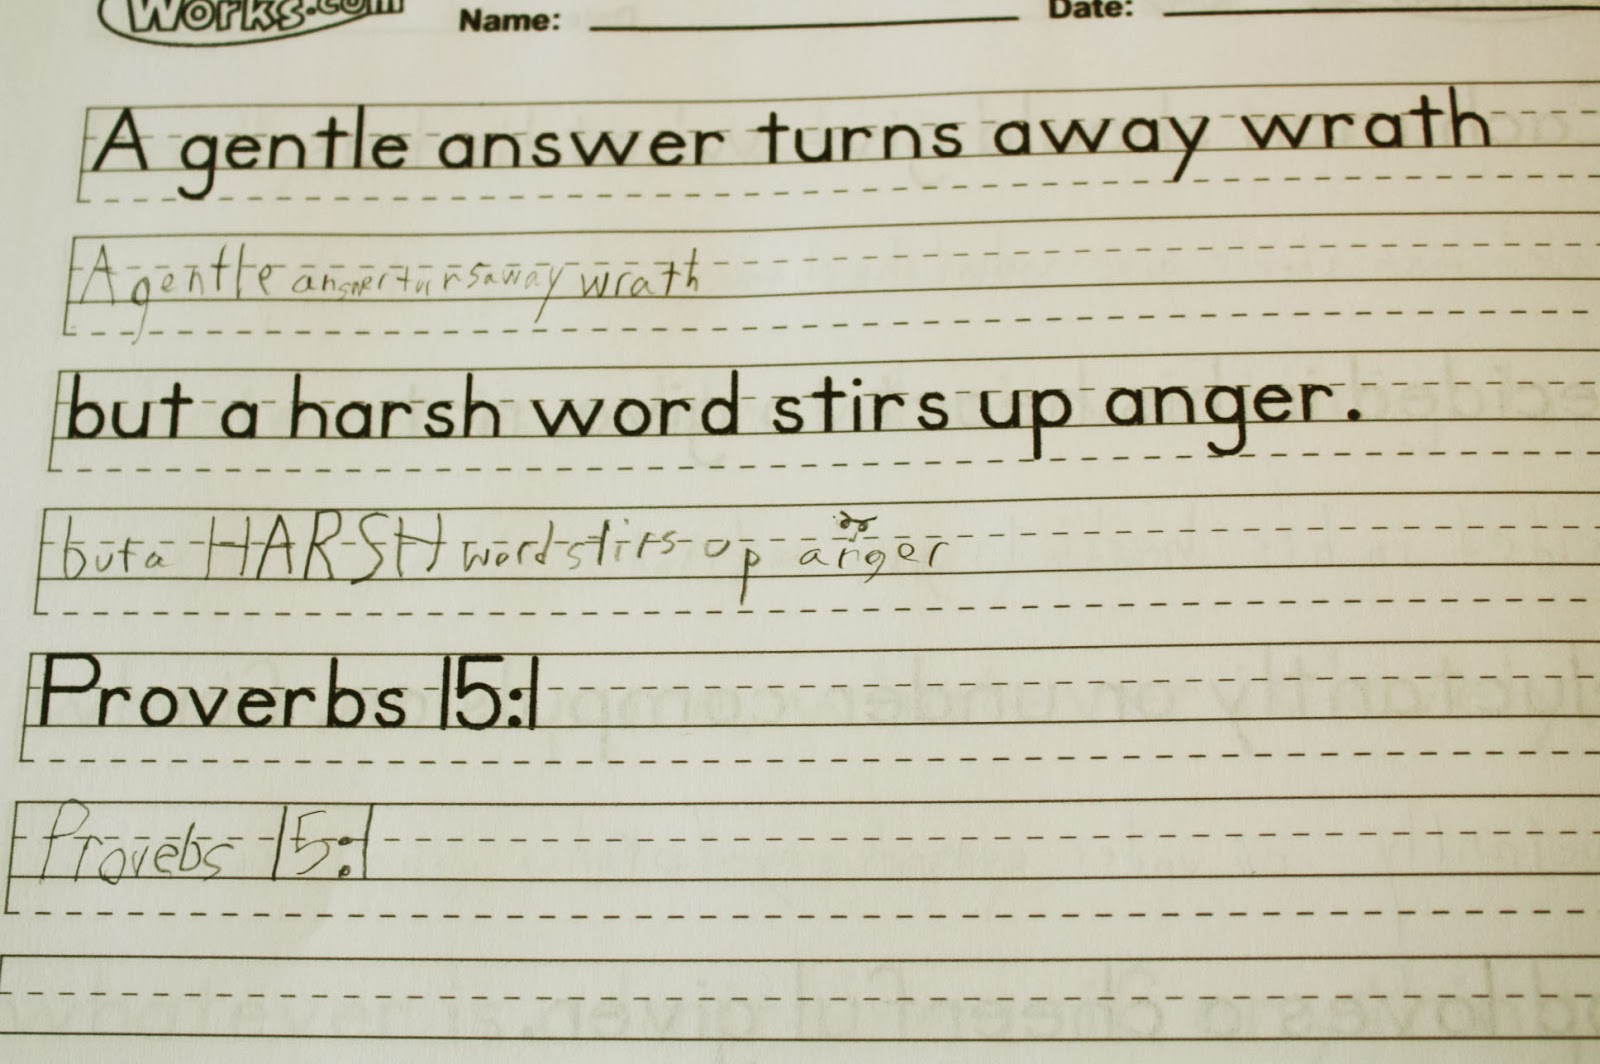 Works.com Name: Date:
A gentle answer turns away wrath
A gentle answer turs away wrath
but a harsh word stirs up anger.
but a HARSH word stirs up anger
Proverbs 15:1
Provebs 15:1